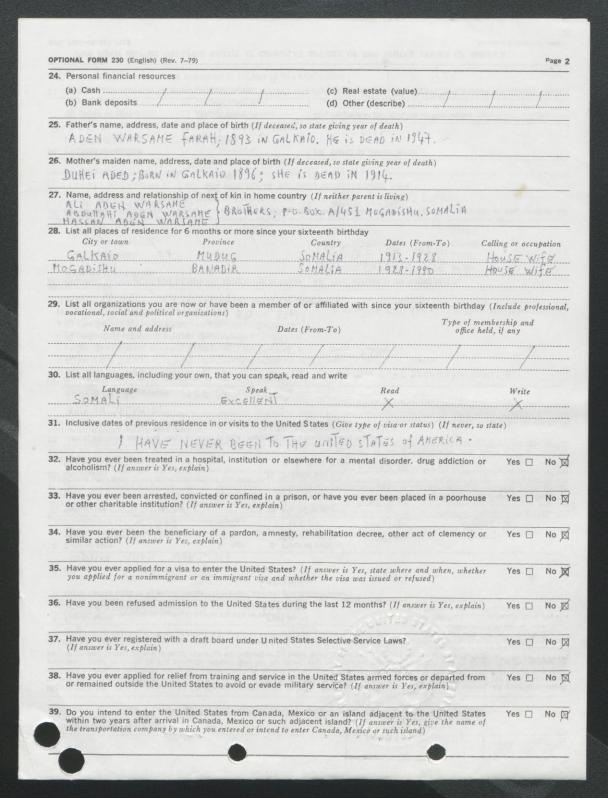 OPTIONAL FORM 230 (English) (Rev. 7-79) Page 2
24. Personal financial resources
(a) Cash / / / (c) Real estate (value) / / /
(b) Bank deposits (d) Other (describe)
25. Father's name, address, date and place of birth (If deceased, so state giving year of death)
ADEN WARSAME FARAH; 1893 IN GALKAIO. HE IS DEAD IN 1947.
26. Mother's maiden name, address, date and place of birth (If deceased, so state giving year of death)
DUHEI ADED; BORN IN GALKAIO 1896; SHE IS DEAD IN 1914.
27. Name, address and relationship of next of kin in home country (If neither parent is living)
ALI ADEN WARSAME
ABDULLAHI ADEN WARSAME } BROTHERS; P.O.BOX. A/451 MOGADISHU. SOMALIA
HASSAN ADEN WARSAME
28. List all places of residence for 6 months or more since your sixteenth birthday
City or town Province Country Dates (From-To) Calling or occupation
GALKAIO MUDUG SOMALIA 1913-1928 HOUSE WIFE
MOGADISHU BANADIR SOMALIA 1928-1990 HOUSE WIFE
29. List all organizations you are now or have been a member of or affiliated with since your sixteenth birthday (Include professional,
vocational, social and political organizations)
Name and address Dates (From-To) Type of membership and
office held, if any
/ / / / / / / /
30. List all languages, including your own, that you can speak, read and write
Language Speak Read Write
SOMALI EXCELLENT X X
31. Inclusive dates of previous residence in or visits to the United States (Give type of visa or status) (If never, so state)
I HAVE NEVER BEEN TO THE UNITED STATES OF AMERICA.
32. Have you ever been treated in a hospital, institution or elsewhere for a mental disorder, drug addiction or Yes ☐ No ☒
alcoholism? (If answer is Yes, explain)
33. Have you ever been arrested, convicted or confined in a prison, or have you ever been placed in a poorhouse Yes ☐ No ☒
or other charitable institution? (If answer is Yes, explain)
34. Have you ever been the beneficiary of a pardon, amnesty, rehabilitation decree, other act of clemency or Yes ☐ No ☒
similar action? (If answer is Yes, explain)
35. Have you ever applied for a visa to enter the United States? (If answer is Yes, state where and when, whether Yes ☐ No ☒
you applied for a nonimmigrant or an immigrant visa and whether the visa was issued or refused)
36. Have you been refused admission to the United States during the last 12 months? (If answer is Yes, explain) Yes ☐ No ☒
37. Have you ever registered with a draft board under United States Selective Service Laws? Yes ☐ No ☒
(If answer is Yes, explain)
38. Have you ever applied for relief from training and service in the United States armed forces or departed from Yes ☐ No ☒
or remained outside the United States to avoid or evade military service? (If answer is Yes, explain)
39. Do you intend to enter the United States from Canada, Mexico or an island adjacent to the United States Yes ☐ No ☒
within two years after arrival in Canada, Mexico or such adjacent island? (If answer is Yes, give the name of
the transportation company by which you entered or intend to enter Canada, Mexico or such island)